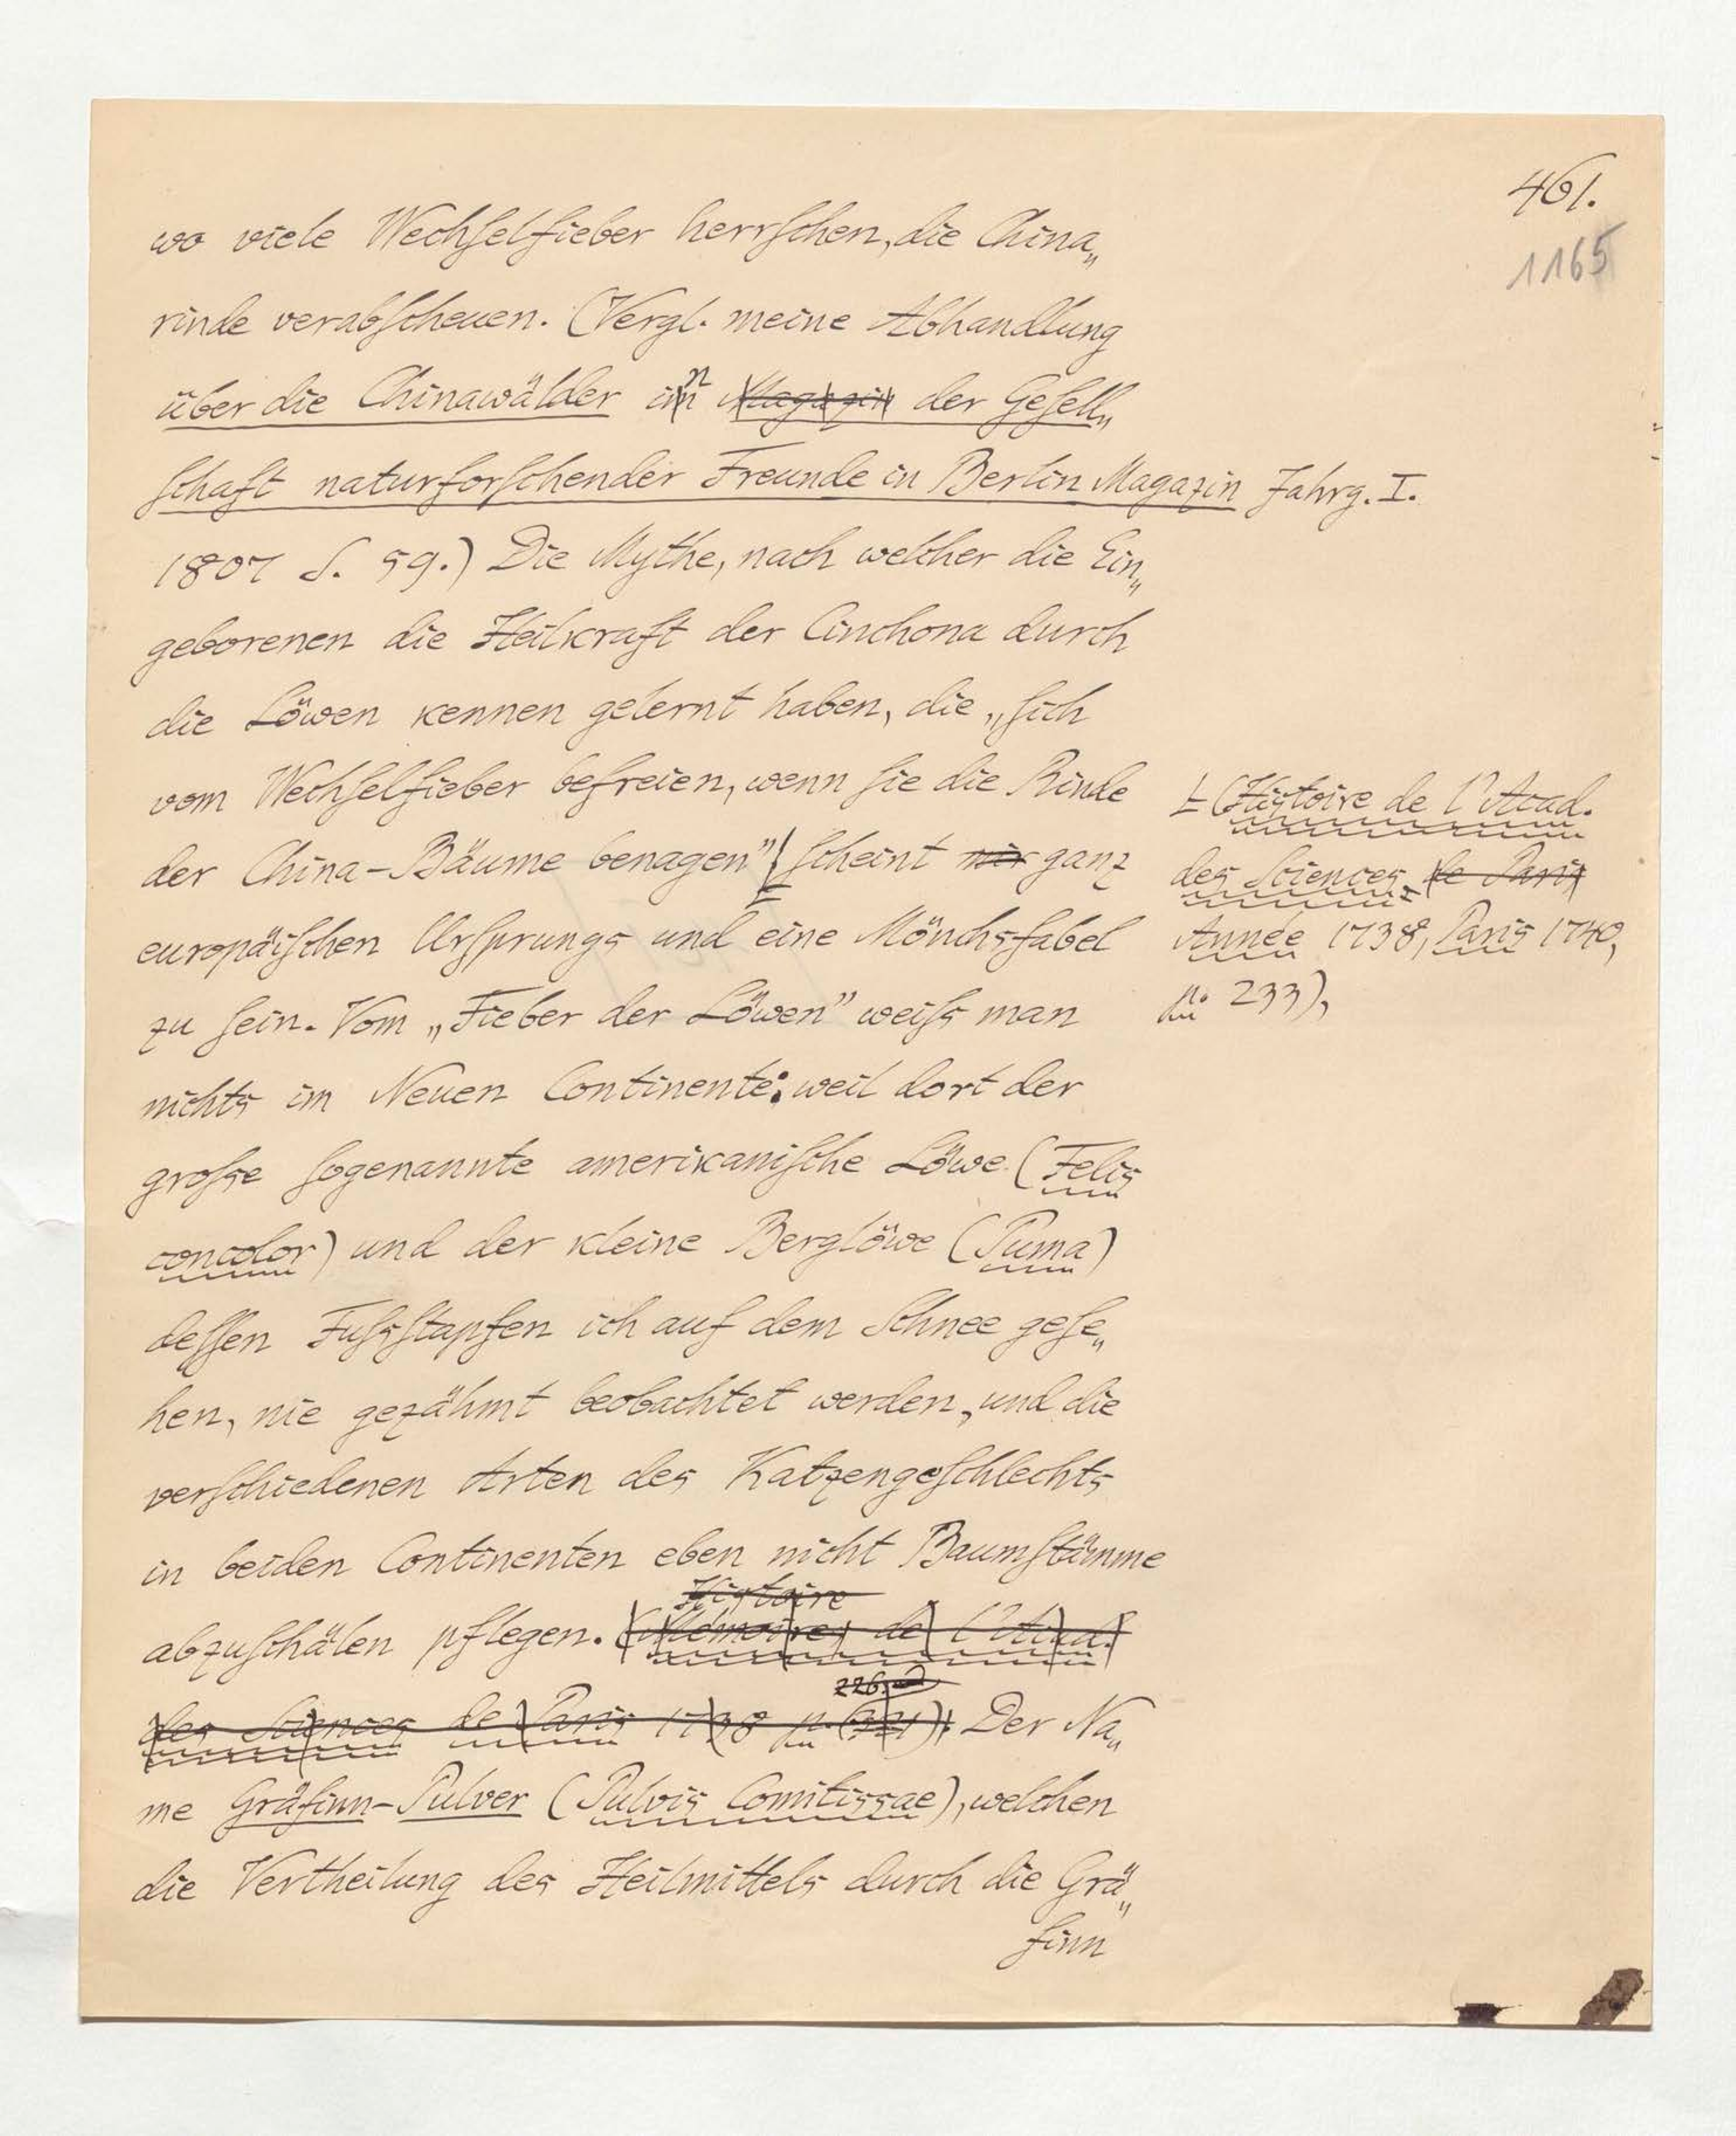 461.
1165
wo viele Wechſelfieber herrſchen, die China„
rinde verabſcheuen. (Vergl. meine Abhandlung
über die Chinawälder in Magazin der Geſell„
ſchaft naturforſchender Freunde in Berlin Magazin Jahrg. I.
1807 S. 59.) Die Mythe, nach welcher die Ein„
geborenen die Heilkraft der Cinchona durch
die Löwen kennen gelernt haben, die „ſich
vom Wechſelfieber befreien, wenn ſie die Rinde
der China-Bäume benagen” ſcheint mir ganz
europäiſchen Urſprungs und eine Mönchsfabel
zu ſein. Vom „Fieber der Löwen” weiſs man
nichts im Neuen Continente: weil dort der
groſse ſogenannte amerikaniſche Löwe (Felis
concolor) und der kleine Berglöwe (Puma)
deſſen Fuſsſtapfen ich auf dem Schnee geſe„
hen, nie gezähmt beobachtet werden, und die
verſchiedenen Arten des Katzengeſchlechts
in beiden Continenten eben nicht Baumſtämme
Histoire
abzuſchälen pflegen. (Mémoires de l'Acad.
226.
des Sciences de Paris 1738 p. Der Na„
me Gräfinn-Pulver (Pulvis Comitissae), welchen
die Vertheilung des Heilmittels durch die Grä„
finn
(Histoire de l'Acad.
des Sciences de Paris
Année 1738, Paris 1740,
p. 233),